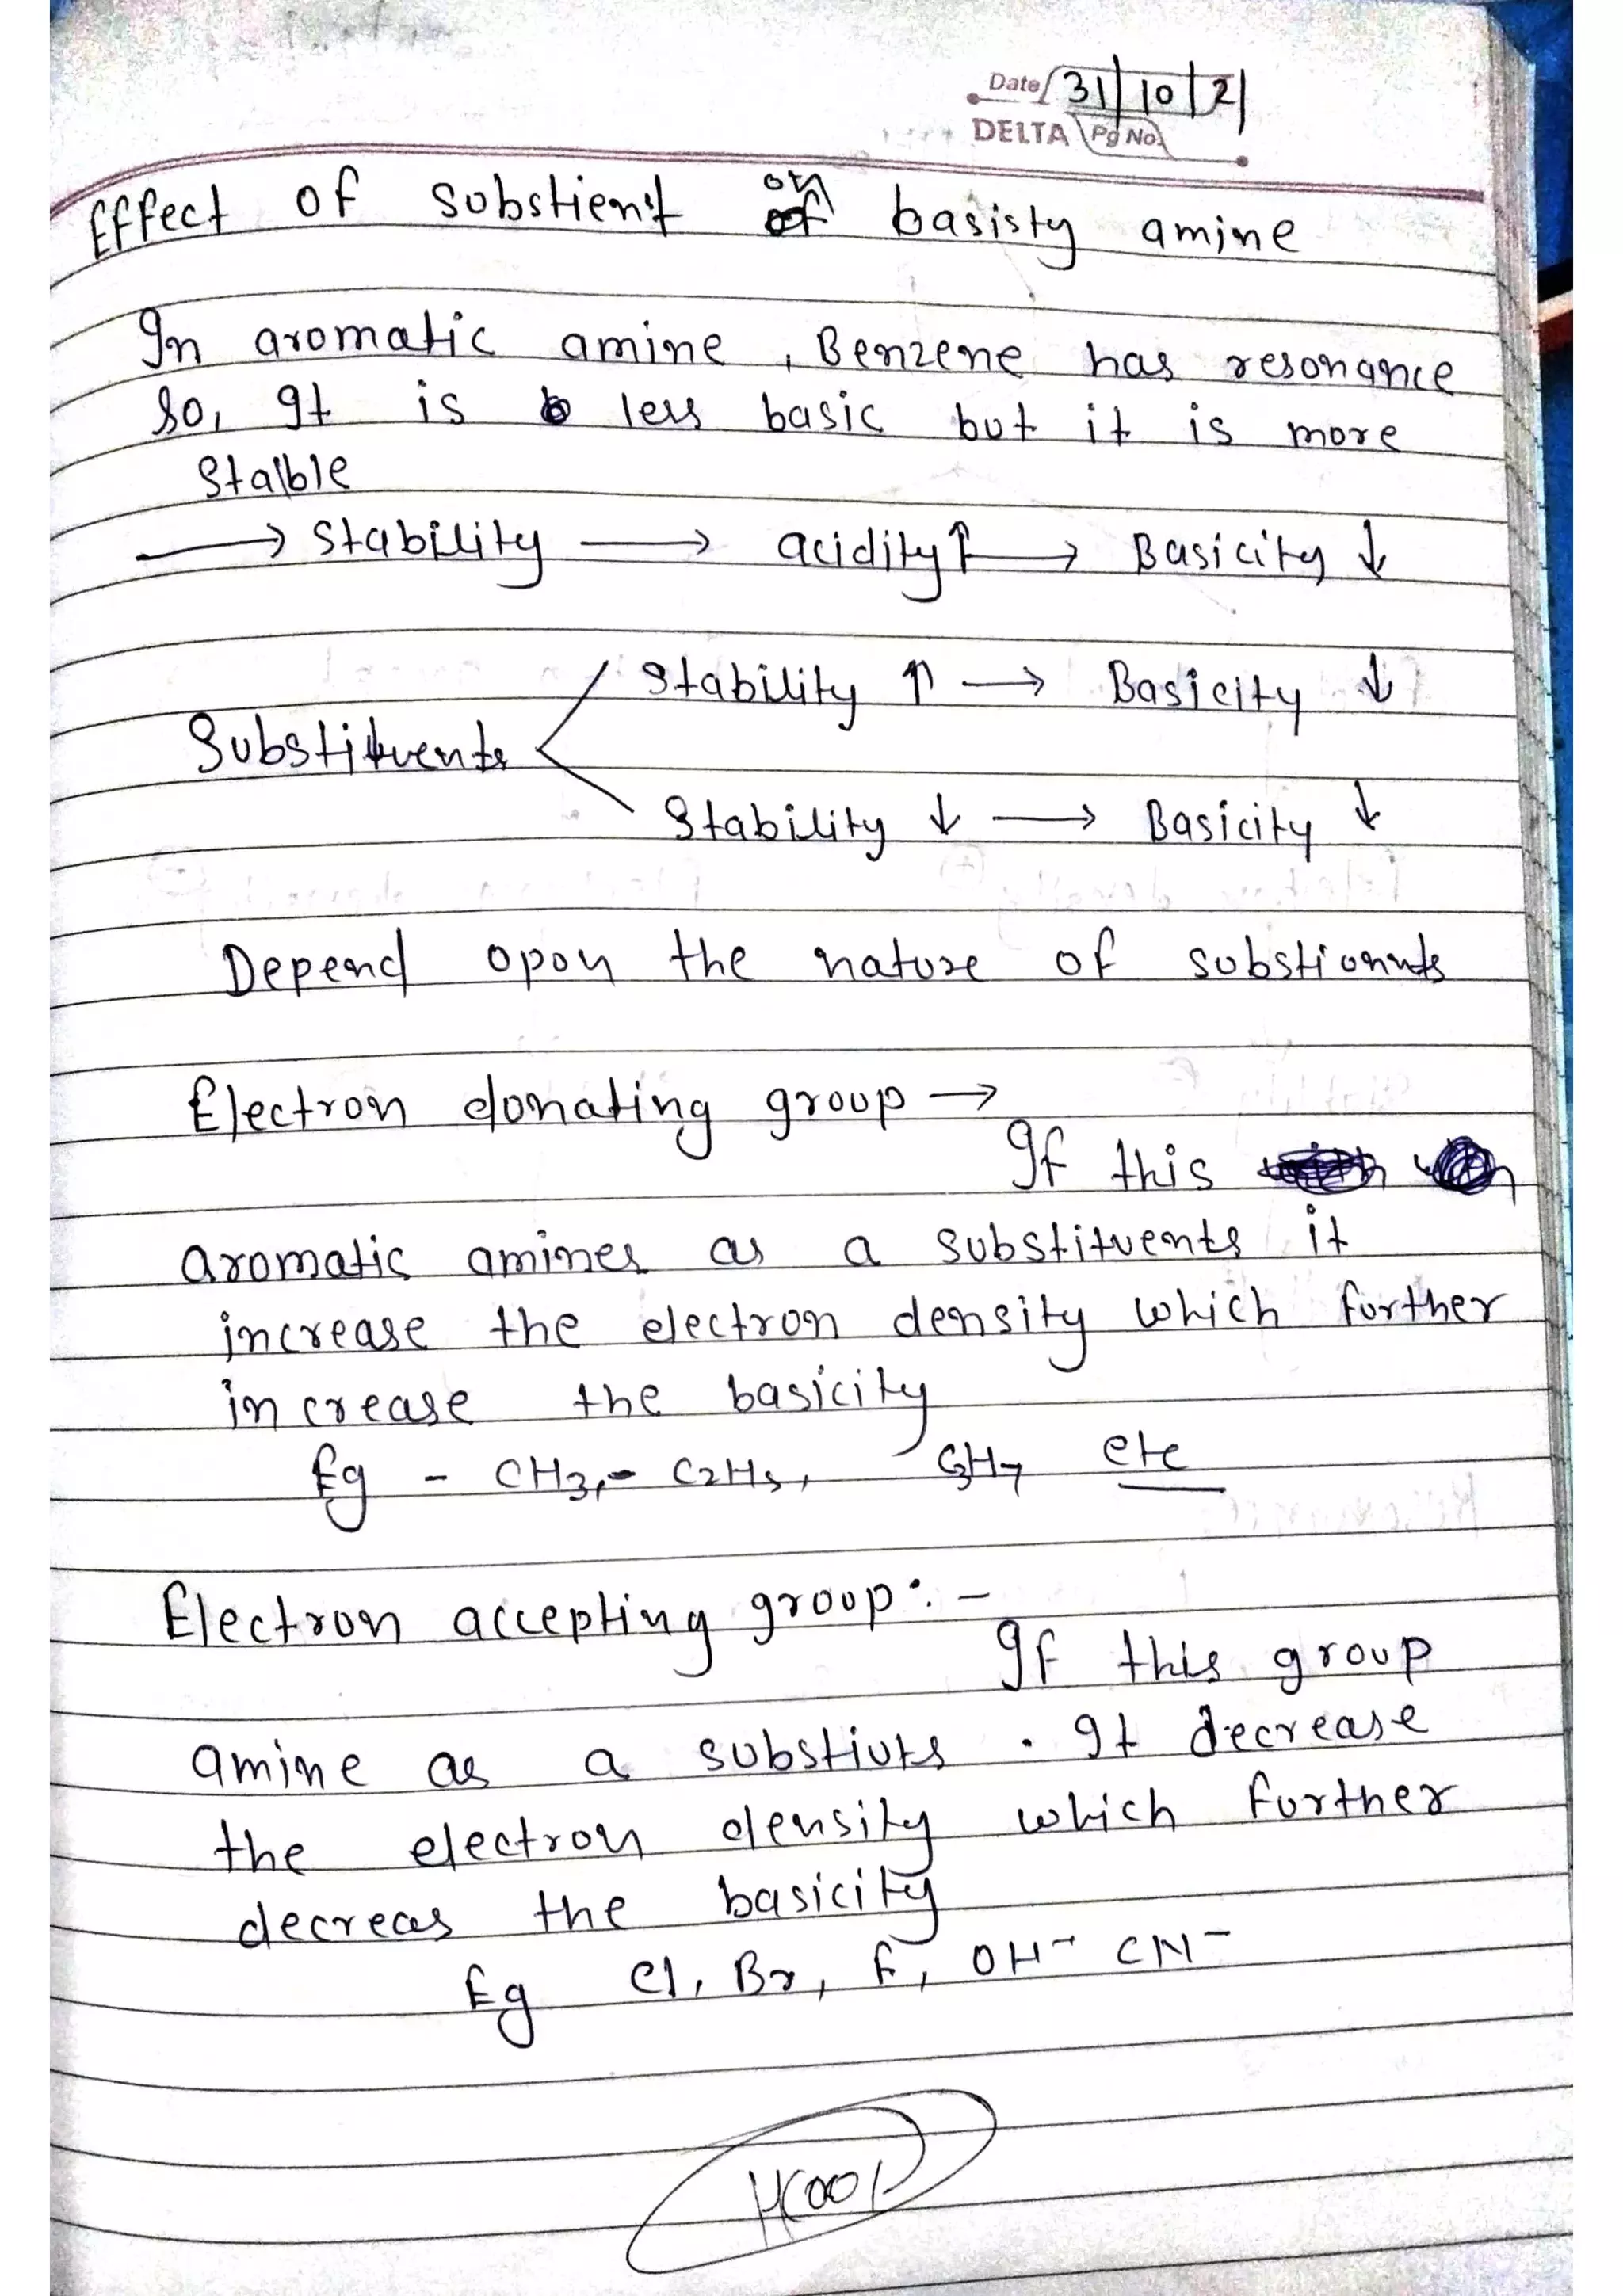 Date 31/10/21
DELTA Pg No.
Effect of substient on basisty amine
In aromatic amine, Benzene has resonance
so, It is less basic but it is more
Stalble
→ Stability → acidity ↑ → Basicity ↓
Stability ↑ → Basicity ↓
Substituents
Stability ↓ → Basicity ↓
Depend opon the nature of substionnts
Electron donating group →
If this
aromatic amines as a substituents it
increase the electron density which further
increase the basicity
Eg - CH3, - C2H5, C3H7 etc
Electron accepting group : -
If this group
amine as a substiuts . It decrease
the electron density which further
decreas the basicity
Eg Cl, Br, F, OH⁻ CN⁻